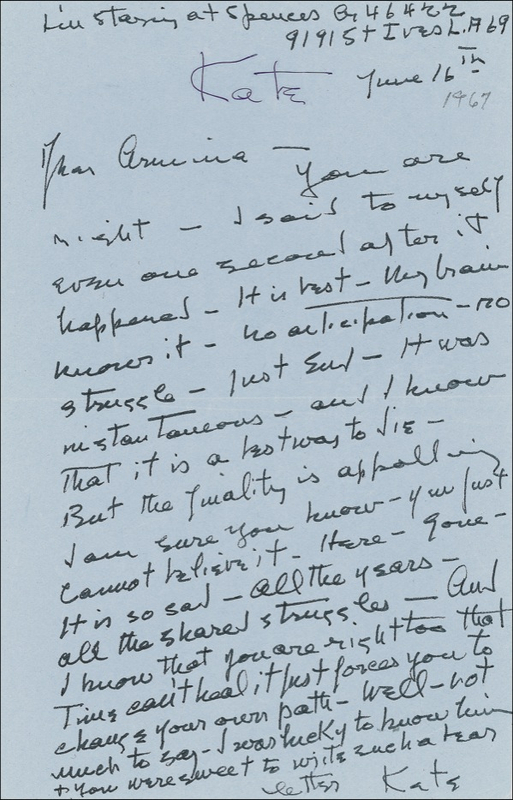 I'm staying at Spences Cr 46422
9191 St Ives L.A 69
Kate June 16th
1967
Dear Armina —
You are
right — I said to myself
even one second after it
happened — It is best — My brain
knows it — no anticipation — no
struggle — Just End — It was
instantaneous — and I know
That it is a best way to die —
But the finality is appalling
I am sure you know — you just
cannot believe it — Here — gone —
It is so sad — all the years —
all the shared struggles — And
I know that you are right too that
Time can't heal it just forces you to
change your own path — Well — not
much to say — I was lucky to know him
+ you were sweet to write such a dear
letter Kate